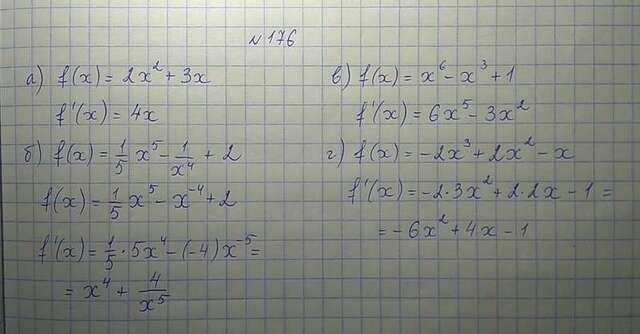 № 176
а) f(x) = 2x² + 3x
f'(x) = 4x
б) f(x) = 1/5 x⁵ - 1/x⁴ + 2
f(x) = 1/5 x⁵ - x⁻⁴ + 2
f'(x) = 1/5 · 5x⁴ - (-4)x⁻⁵ =
= x⁴ + 4/x⁵
в) f(x) = x⁶ - x³ + 1
f'(x) = 6x⁵ - 3x²
г) f(x) = -2x³ + 2x² - x
f'(x) = -2·3x² + 2·2x - 1 =
= -6x² + 4x - 1